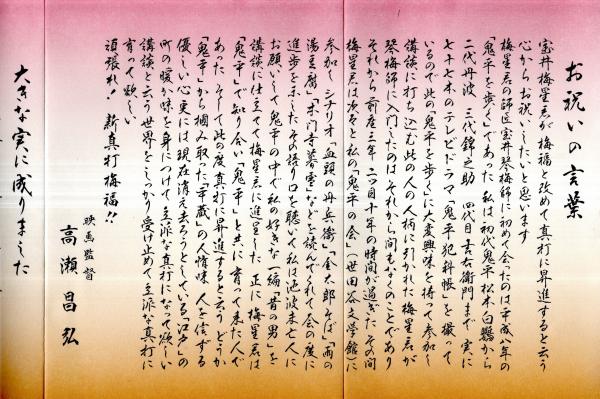 お祝いの言葉
宝井梅星君が梅福と改めて真打に昇進すると云う
心からお祝いしたいと思います
梅星君の師匠宝井琴梅師に初めて会ったのは平成八年の
「鬼平を歩く」であった 私は初代鬼平松本白鸚から
二代丹波 三代錦之助 四代目吉右衛門まで 実に
七十七本のテレビドラマ「鬼平犯科帳」を撮って
いるので此の「鬼平を歩く」に大変興味を持って参加し
講談に打ち込む此の人の人柄に引かれた梅星君が
琴梅師に入門したのはそれから間もなくのことであり
それから前座三年 二つ目十年の時間が過ぎた その間
梅星君は次々と私の「鬼平の会」(世田谷文学館)に
参加し シナリオ「血頭の丹兵衛」「金太郎そば」「雨の
湯豆腐」「本門寺暮雪」などを読んでくれて会の度に
進歩を示した その語り口を聴いて私は池波未亡人に
お願いして鬼平の中で私の好きな一編「昔の男」を
講談に仕立てて梅星君に進呈した 正に梅星君は
「鬼平」で知り合い「鬼平」と共に育って来た人で
あった そして此の度真打に昇進すると云う どうか
「鬼平」から掴み取った「平蔵」の人情味 人を信ずる
優しい心 更には現在消え去ろうとしている「江戸」の
町の暖か味を身につけて立派な真打になって欲しい
講談と云う世界をしっかり受け止めて立派な真打に
育って欲しい
頑張れ! 新真打梅福!!
映画監督
高瀬昌弘
大きな実に成りました